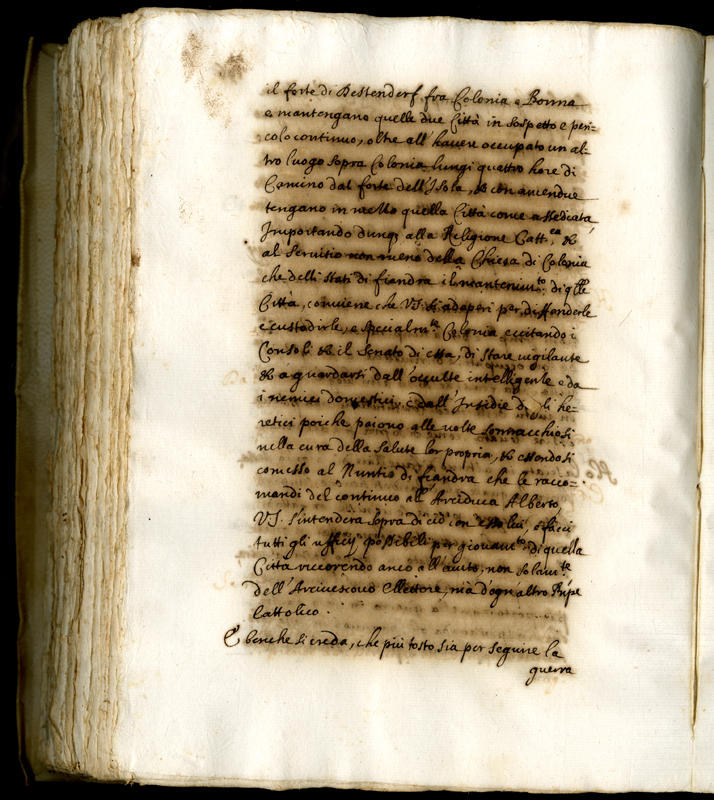 il forte di Bestenderf fra Colonia e Bonna
e mantengano quelle due Città in sospetto e peri=
colo continuo, oltre all'hauere occupato un al=
tro luogo sopra Colonia lungi quattro hore di
Camino dal forte dell'Isola, & con amendue
tengano in mezzo quella Città come assediata,
Importando dunq; alla Religione Catt.ca &
al Seruitio non meno della Chiesa di Colonia
che delli stati di fiandra il mantenim.to di q.lle
Città, conuiene che VS. si adoperi per diffenderle
e custodirle, e specialm.te Colonia eccitando i
Consoli & il Senato di essa, di stare uigilante
& a guardarsi dall'occulte intelligenze e da
i nemici domestici, e dall'Insidie degli he=
retici poiche paiono alle uolte sonnacchiosi
nella cura della salute lor propria, & essendosi
comesso al Nuntio di fiandra che le racco=
mandi del continuo all'Arciduca Alberto,
VS. s'intenderà sopra di ciò con esso lui, e facci
tutti gli ufficij possibili per giouam.to di quella
Città riccorrendo anco all'aiuto, non solam.te
dell'Arciuescouo Elettore, ma d'ogn'altro Pñpe
Cattolico.
E benche si creda, che più tosto sia per seguire la
guerra